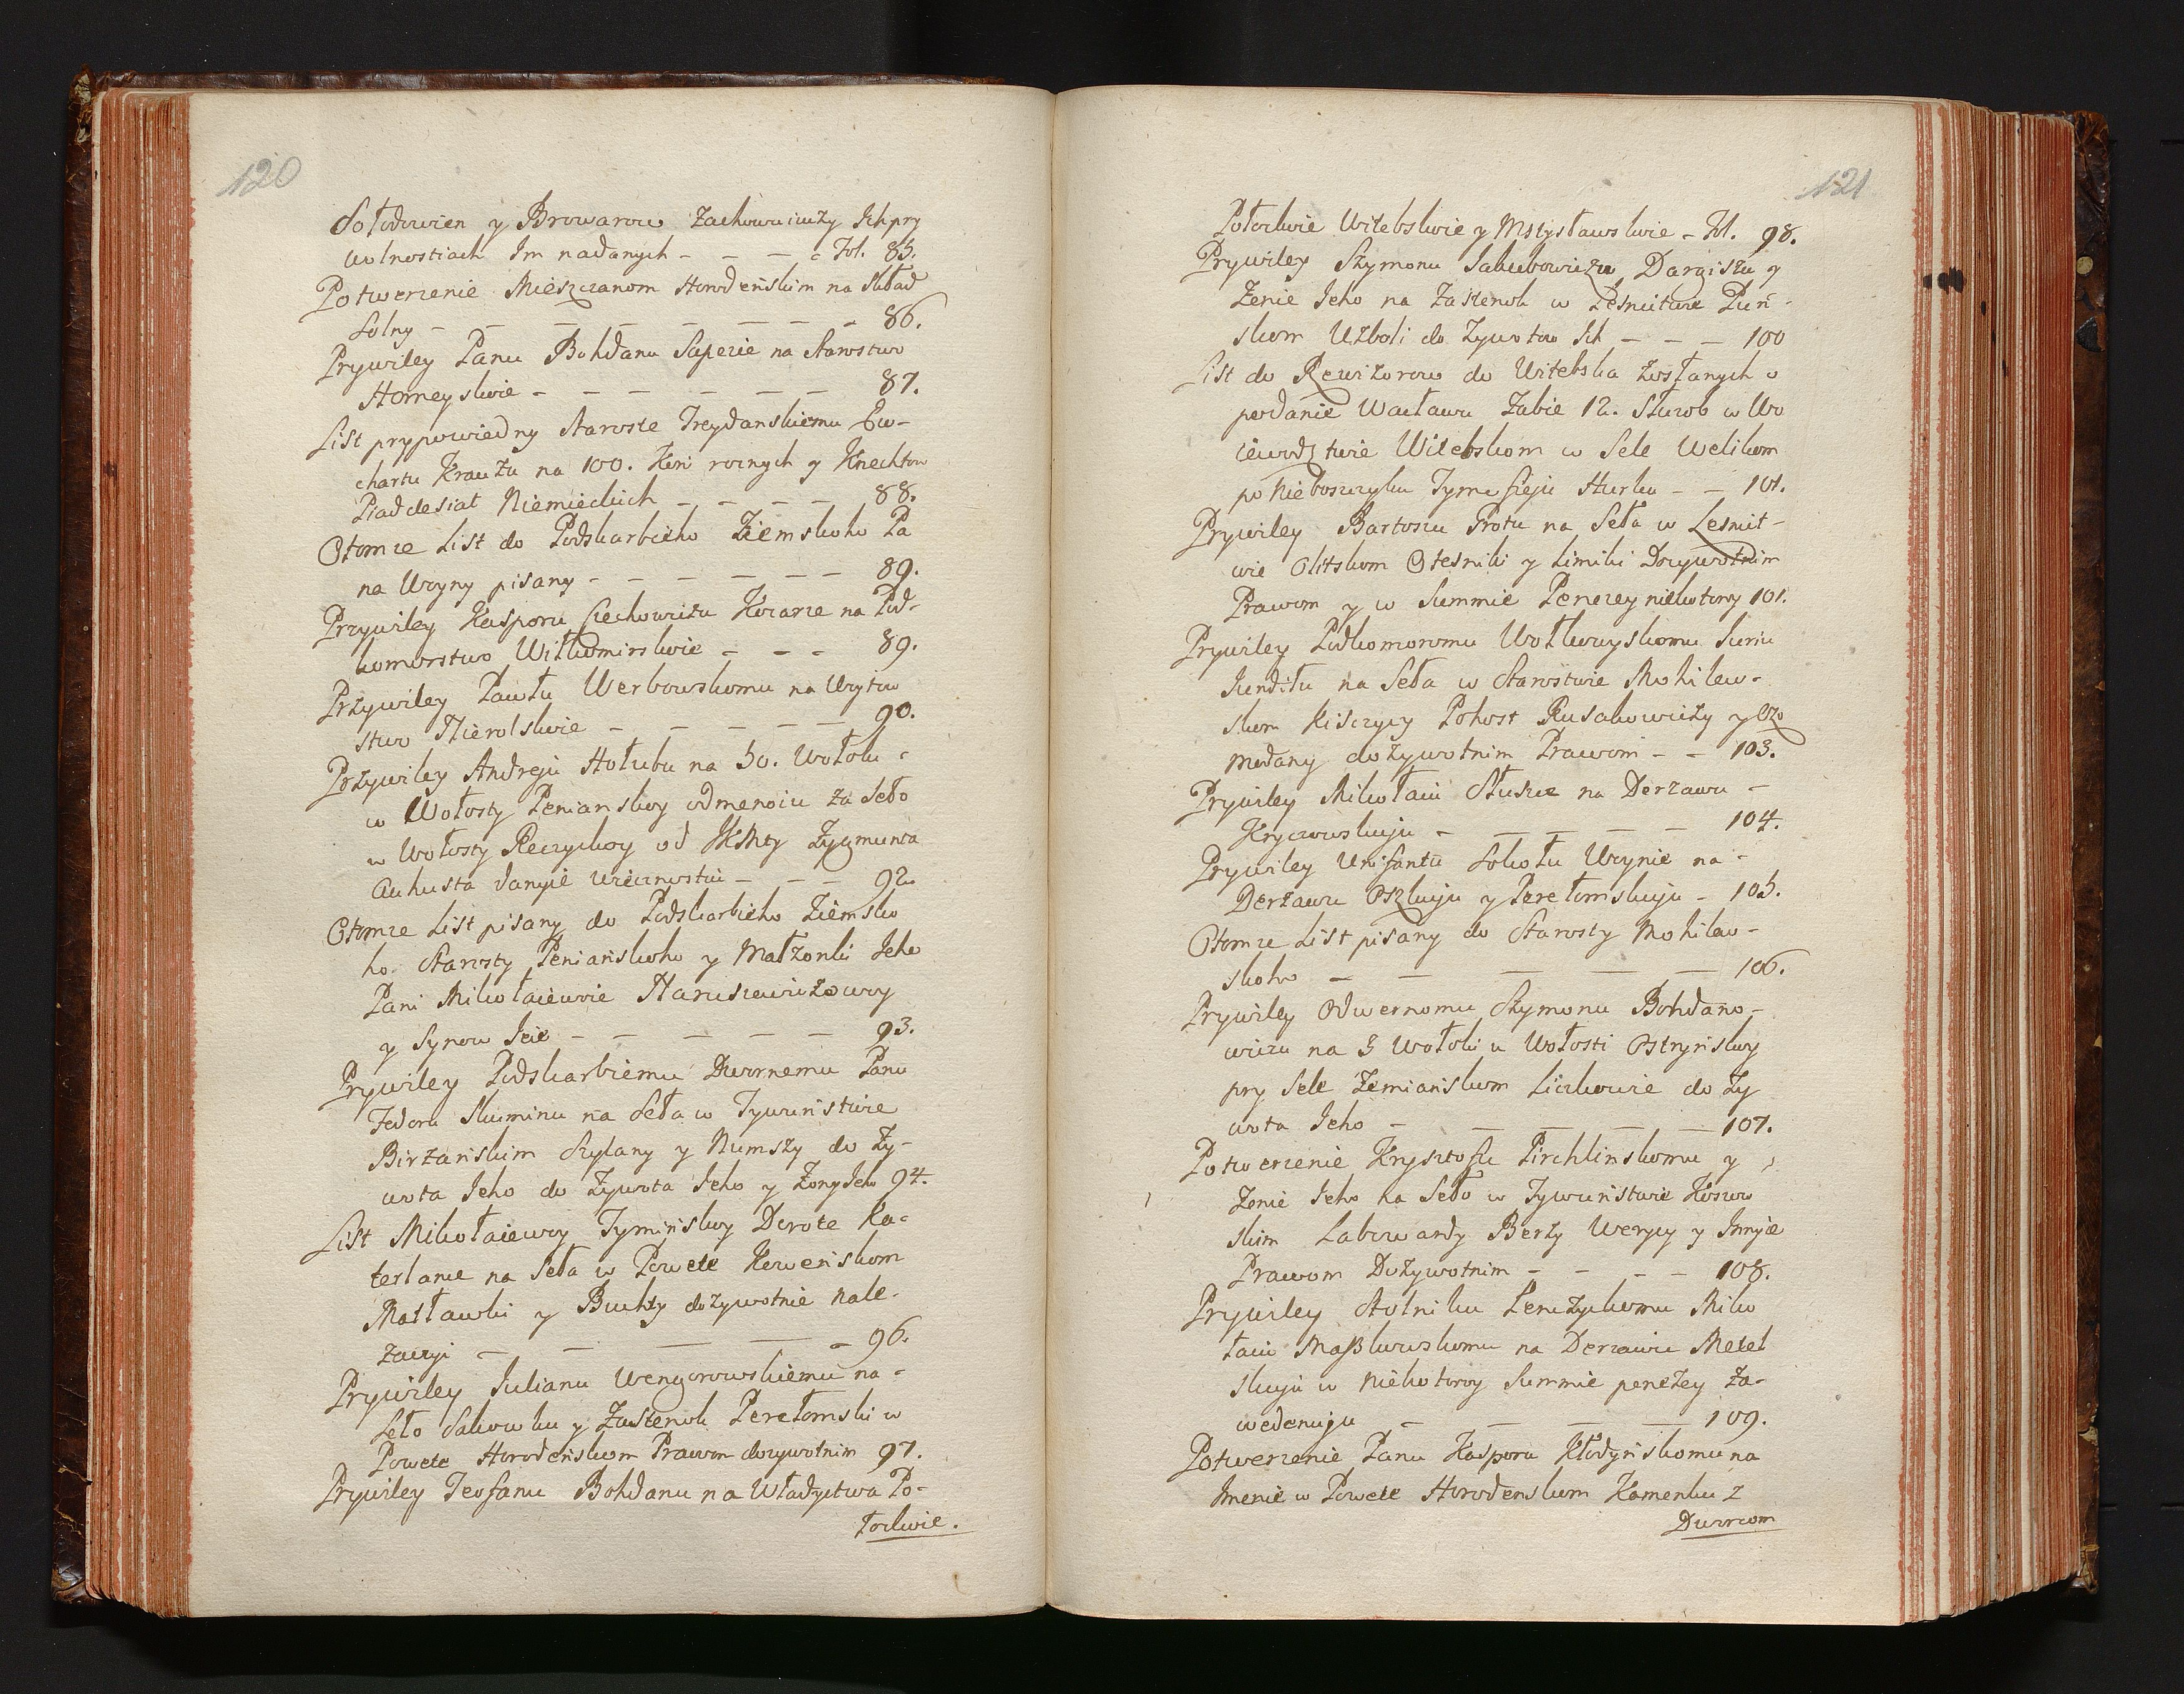 120
Sołodowien y Browarow Zachowuiuczy Ich pry
wolnostiach Im nadanych - - - - Fol. 85.
Potwerzenie Mieszczanom Horodeńskim na Skład
Solny - - - - - - - 86.
Prywiley Panu Bohdanu Sapezie na Starostwo
Homeyskoie - - - - - - 87.
List prypowiedny Staroste Treydanskiemu Ew-
chartu Krauzu na 100. Koni rocznych y Knechtow
Piaddesiat Niemieckich - - - - 88.
Otomze List do Podskarbieho Ziemskoho Pa
na Woyny pisany - - - - - - 89.
Przywiley Kasporu Czechowiczu Kozarze na Pod-
komorstwo Wiłkomirskoie - - - 89.
Przywiley Pawłu Werbowskomu na Woytow
stwo - - - - - 90.
Przywiley Andreju Hołubu na 50. Wołok -
w Wołosty Penianskoy odmenoiu za Seło
w Wołosty Reczyckoy od JKMty Zygmunta
Auhusta danyie wiecznostiu - - - 92.
Otomze List pisany do Podskarbieho Ziemsko
ho. Starosty Peniańskoho y Małżonki Jeho
Pani Mikołaiewie Naruszewiczowoy
y Synow Jeie - - - - - 93.
Prywiley Podskarbiemu Dwornemu Panu
Fedoru Skuminu na Seła w Tywuństwie
Birżańskim Szylany y Numszy do Ży-
wota Jeho do Żywota Jeho y Żony Jeho 94.
List Mikołaiewoy Tymińskoy Dorote Ka-
terlanie na Seła w Powete Kowenskom
Masławki y Buchty dożywotnie nale-
żaczyi - - - - - 96.
Prywiley Julianu Wengorowskiemu na -
Seło Sakowku y Zastenok Perełomski w
Powete Horodeńskom Prawom dożywotnim 97.
Prywiley Teofanu Bohdanu na Władyctwa Po-
łockoie.
121
Połockoie Witebskoie y Mstysławskoie - Fol. 98.
Prywiley Szymonu Jakubowiczu Dargiszu y
Żenie Jeho na Zastenok w Lesnictwie Puń-
skom Użboli do Żywotow Ich - - - 100
List do Rewizorow do Witebska zosłanych o
podanie Wacławu Żabie 12. Służob w Wo
iewodztwie Witebskom w Sele Welikom
po Nieboszczyku Tymofieju Hurku - - 101.
Prywiley Bartoszu Protu na Seła w Lesnict-
wie Olitskom Otesniki y Limiki Dożywotnim
Prawom y w Summie Penezey niekotoroy 101.
Prywiley Podkomoromu Wołkowyskomu Juriu
Jundiłu na Seła w Starostwie Mohilew-
skom Kisczycy Pohost Rusakowiczy y Ozo
medany dożywotnim Prawom - - 103.
Prywiley Mikołaiu Słuszce na Derżawu -
Kryczowskuju - - - - - 104.
Prywiley Unifantu Sokołu Woynie na -
Derżawu Oszkuju y Perełomskuju - 105.
Otomze List pisany do Starosty Mohilew-
skoho - - - - - 106.
Prywiley Odwernomu Szymonu Bohdano-
wiczu na 3 Wołoki u Wołosti Ostryńskoy
pry Sele Zemiańskom Liczkowie do Ży
wota Jeho - - - - - 107.
Potwerzenie Krysztofu Pirchlinskomu y
Żenie Jeho na Seło w Tywuństwie Kosow
skim Labowardy Berży Werycy y Innyie
Prawom Dożywotnim - - - - 108.
Prywiley Stolniku Lenczyckomu Miko
łaiu Maszkowskomu na Derzawu Metel
skuju w niekotoroy Summie penezey za-
wedenuju - - - - 109.
Potwerzenie Panu Kasporu Kłodyńskomu na
Imenie w Powete Horodenskom Kamenku z
Dworcom